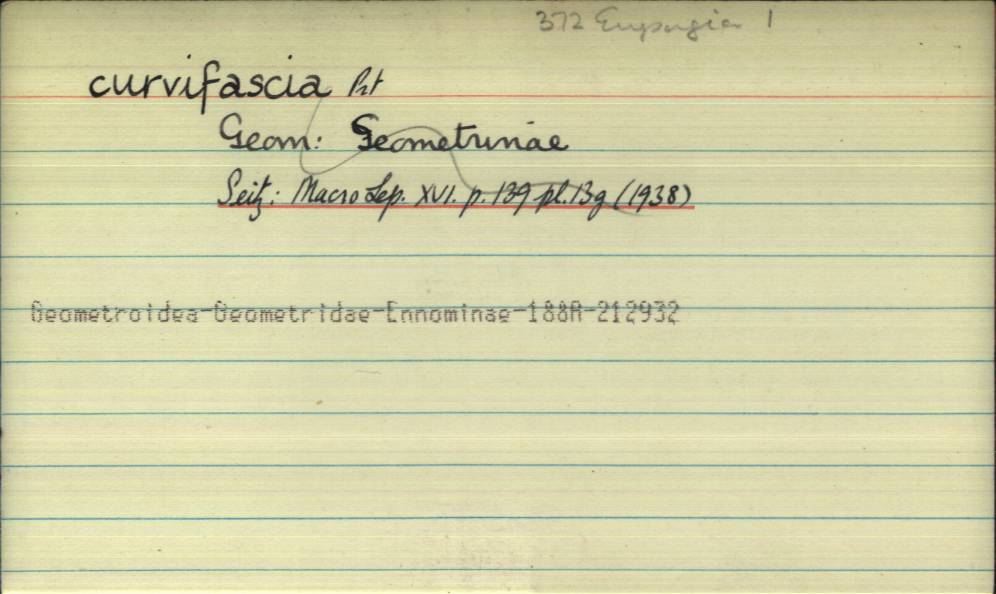 372 1
curvifascia Prt
Geom: Geometrinae
Seitz: Macro Lep. XVI. p. 139 pl. 13g (1938)
Geometroidea-Geometridae-Ennominae-188A-212932